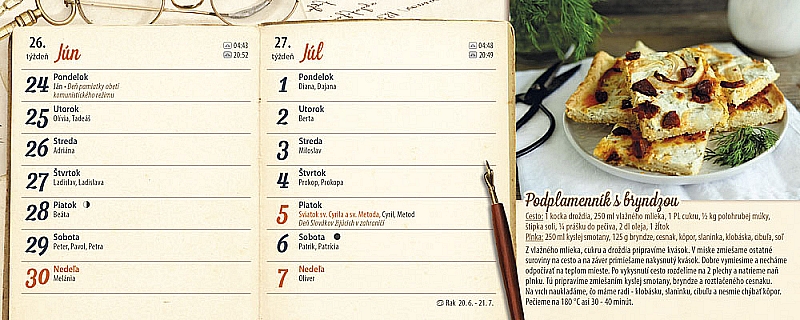 26.
týždeň
Jún
04:43
20:52
24 Pondelok
Ján • Deň pamiatky obetí
komunistického režimu
25 Utorok
Olívia, Tadeáš
26 Streda
Adriána
27 Štvrtok
Ladislav, Ladislava
28 Piatok
Beáta
29 Sobota
Peter, Pavol, Petra
30 Nedeľa
Melánia
27.
týždeň
Júl
04:48
20:49
1 Pondelok
Diana, Dajana
2 Utorok
Berta
3 Streda
Miloslav
4 Štvrtok
Prokop, Prokopa
5 Piatok
Sviatok sv. Cyrila a sv. Metoda, Cyril, Metod
Deň Slovákov žijúcich v zahraničí
6 Sobota
Patrik, Patrícia
7 Nedeľa
Oliver
Rak 20. 6. - 21. 7.
Podplamenník s bryndzou
Cesto: 1 kocka droždia, 250 ml vlažného mlieka, 1 PL cukru, ½ kg polohrubej múky,
štipka soli, ¼ prášku do pečiva, 2 dl oleja, 1 žĺtok
Plnka: 250 ml kyslej smotany, 125 g bryndze, cesnak, kôpor, slaninka, klobáska, cibuľa, soľ
Z vlažného mlieka, cukru a droždia pripravíme kvások. V miske zmiešame ostatné
suroviny na cesto a na záver primiešame nakysnutý kvások. Dobre vymiesime a necháme
odpočívať na teplom mieste. Po vykysnutí cesto rozdelíme na 2 plechy a natrieme naň
plnku. Tú pripravíme zmiešaním kyslej smotany, bryndze a roztlačeného cesnaku.
Na vrch naukladáme, čo máme radi - klobásku, slaninku, cibuľu a nesmie chýbať kôpor.
Pečieme na 180 °C asi 30 - 40 minút.